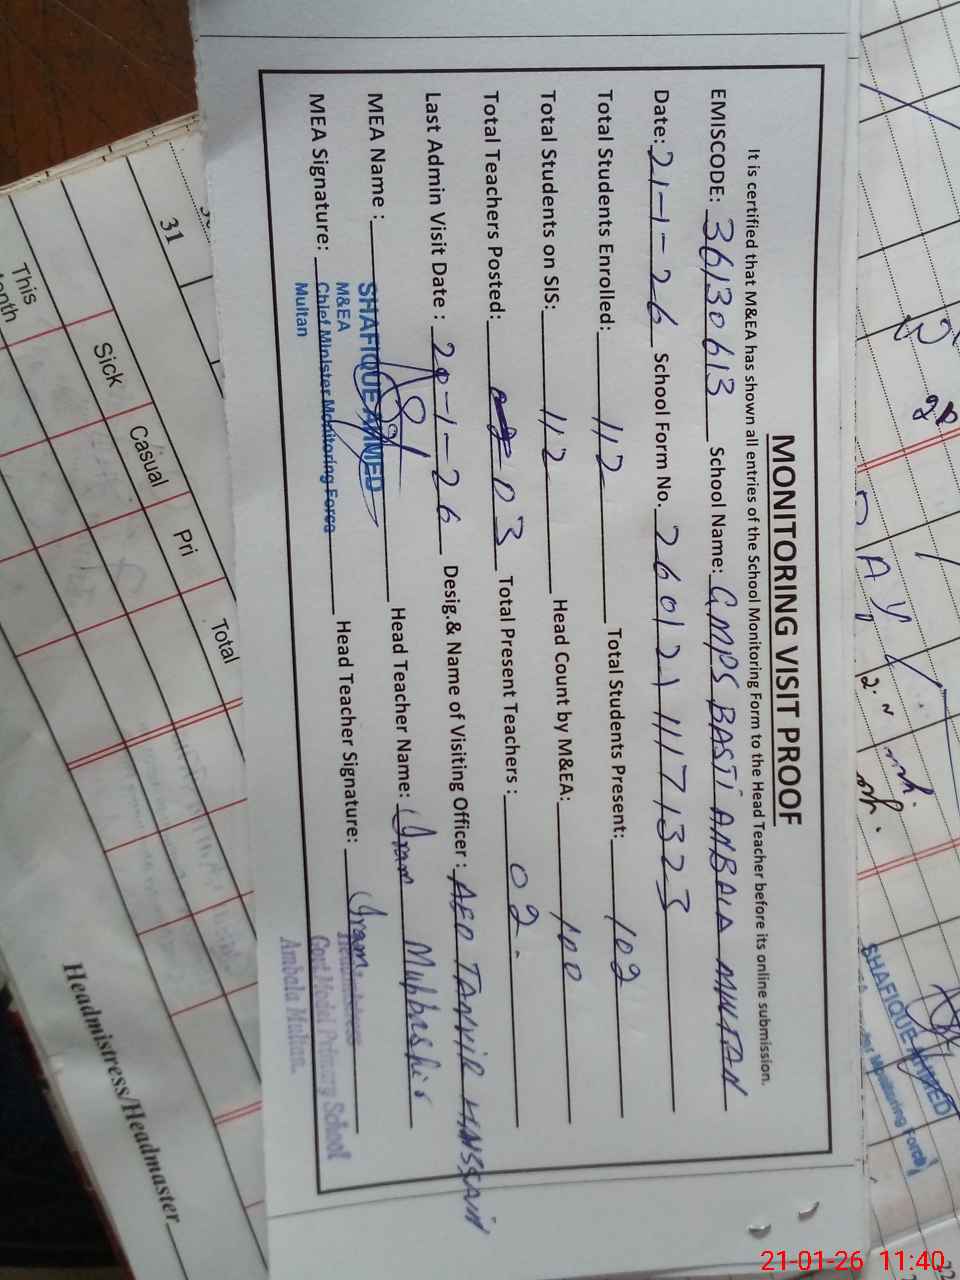 MONITORING VISIT PROOF
It is certified that M&EA has shown all entries of the School Monitoring Form to the Head Teacher before its online submission.
EMISCODE: 36130613 School Name: GMPS BASTI ANBALA MULTAN
Date: 21-1-26 School Form No. 260121117 1323
Total Students Enrolled: 112 Total Students Present: 102
Total Students on SIS: 112 Head Count by M&EA: 100
Total Teachers Posted: 03 Total Present Teachers : 02.
Last Admin Visit Date : 20-1-26 Desig.& Name of Visiting Officer : AEO TANVIR HUSSAIN
MEA Name : Head Teacher Name: Iram Mubbashir
SHAFIQUE AHMED
M&EA
MEA Signature: Head Teacher Signature: Iram
Chief Minister Monitoring Force
Multan
Headmistress
Govt Model Primary School
Ambala Multan.
31
This
Month
Sick
Casual
Pri
Total
Headmistress/Headmaster
SHAFIQUE AHMED
Monitoring Force
21-01-26 11:40